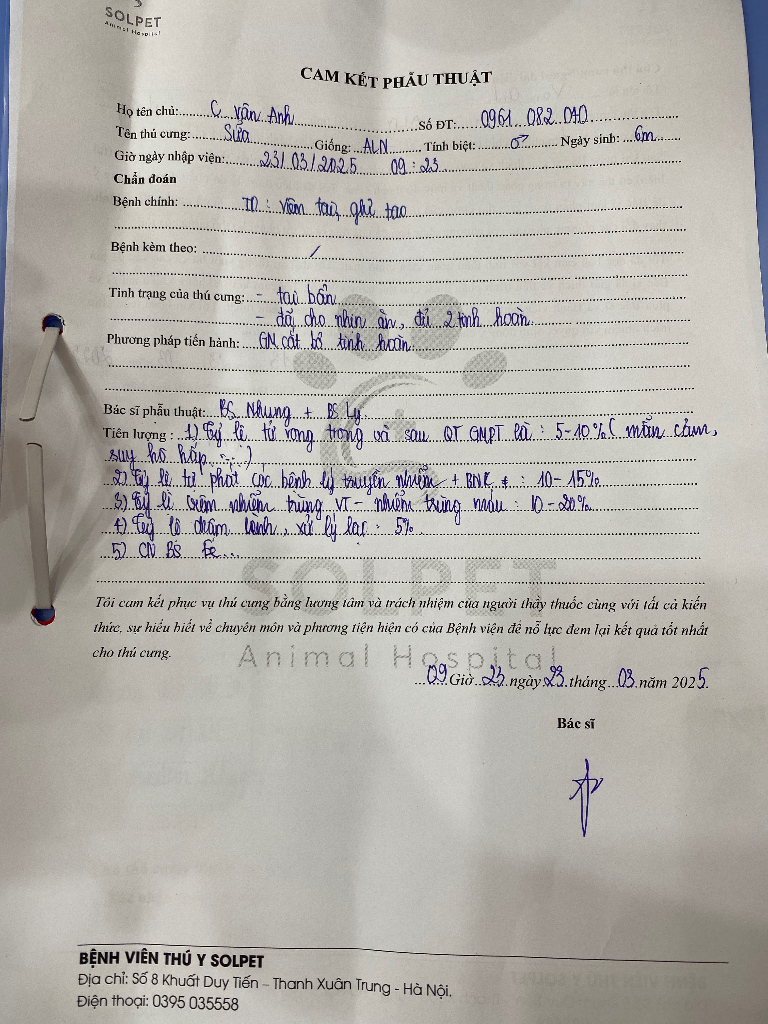 SOLPET
Animal Hospital
CAM KẾT PHẪU THUẬT
Họ tên chủ: C Vân Anh Số ĐT: 0961 082 040
Tên thú cưng: Sữa Giống: ALN Tính biệt: ♂ Ngày sinh: 6m
Giờ ngày nhập viện: 23/03/2025 09:23
Chẩn đoán
Bệnh chính: TD: viêm tai, ghẻ tai
Bệnh kèm theo: /
Tình trạng của thú cưng: - tai bẩn
- đã cho nhịn ăn, đủ 2 tinh hoàn
Phương pháp tiến hành: GN cắt bỏ tinh hoàn
Bác sĩ phẫu thuật: BS Nhung + BS Ly
Tiên lượng: 1) Tỷ lệ tử vong trong và sau QT GMPT là: 5-10% (mẫn cảm,
suy hô hấp ...)
2) Tỷ lệ tự phát các bệnh lý truyền nhiễm + : 10-15%
3) Tỷ lệ viêm nhiễm trùng VT - nhiễm trùng máu: 10-20%
4) Tỷ lệ chậm lành, xử lý lại: 5%
5) CN BS
SOLPET
Tôi cam kết phục vụ thú cưng bằng lương tâm và trách nhiệm của người thầy thuốc cùng với tất cả kiến
thức, sự hiểu biết về chuyên môn và phương tiện hiện có của Bệnh viện để nỗ lực đem lại kết quả tốt nhất
cho thú cưng.
Animal Hospital
09 Giờ 23 ngày 23 tháng 03 năm 2025
Bác sĩ
BỆNH VIÊN THÚ Y SOLPET
Địa chỉ: Số 8 Khuất Duy Tiến - Thanh Xuân Trung - Hà Nội.
Điện thoại: 0395 035558